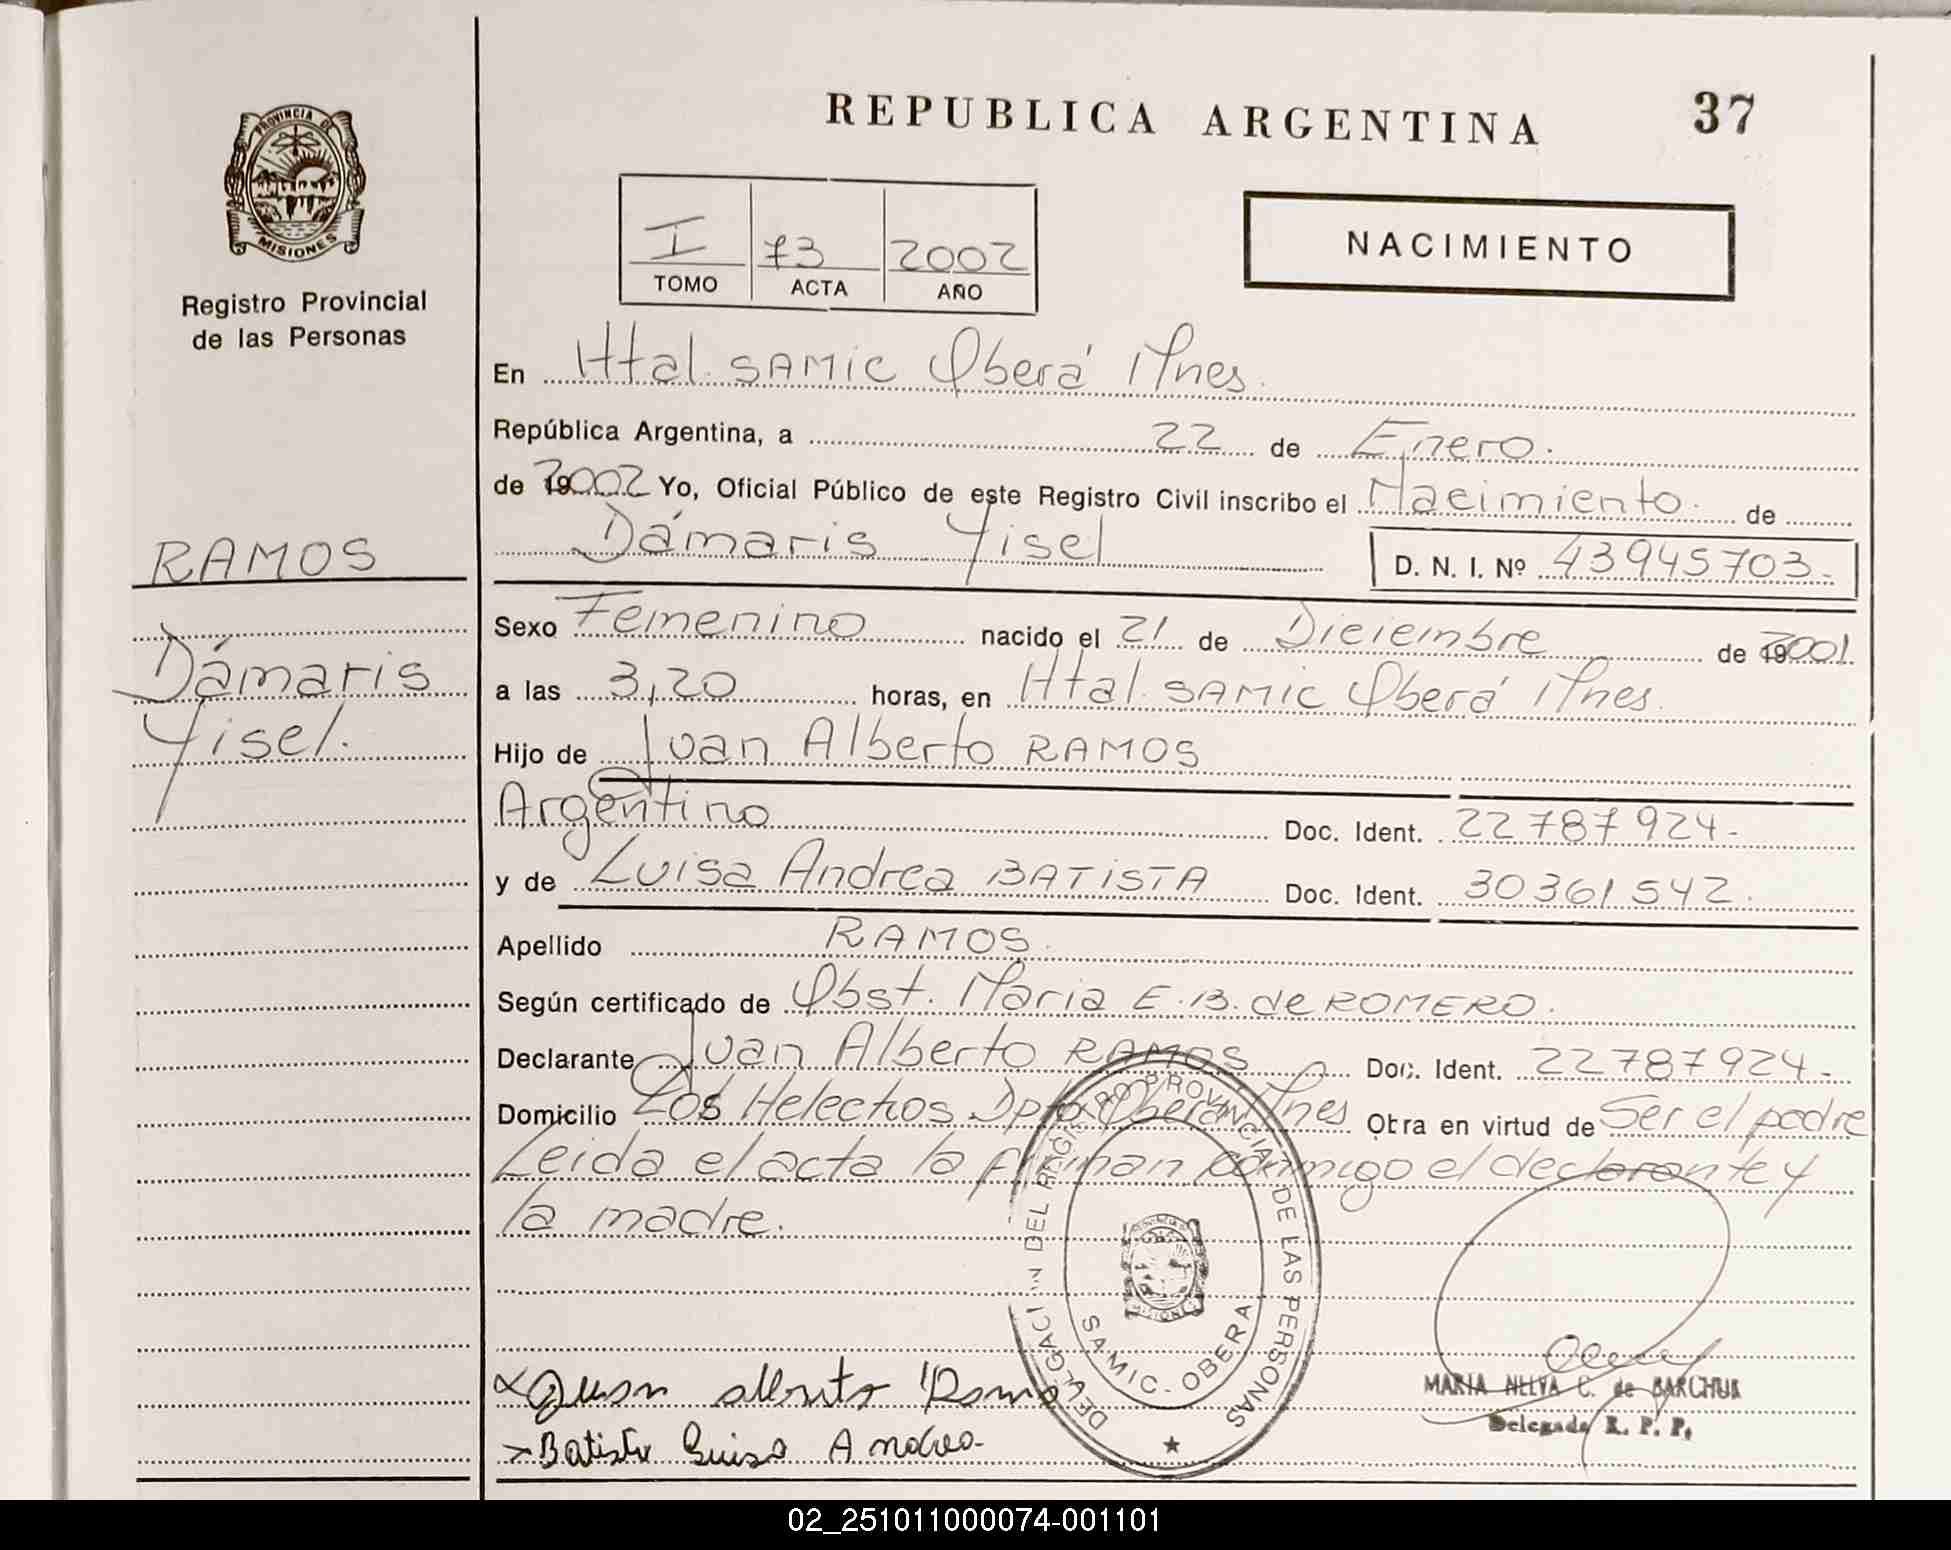 REPUBLICA ARGENTINA
37
PROVINCIA DE
MISIONES
Registro Provincial
de las Personas
I 73 2002
TOMO ACTA AÑO
NACIMIENTO
En Htal. SAMIC Oberá Mnes.
República Argentina, a 22 de Enero.
de 2002 Yo, Oficial Público de este Registro Civil inscribo el Nacimiento. de
Dámaris Yisel D. N. I. Nº 43945703.-
RAMOS
Dámaris
Yisel.
Sexo Femenino nacido el 21 de Diciembre de 2001
a las 3,20 horas, en Htal. SAMIC Oberá Mnes.
Hijo de Juan Alberto RAMOS
Argentino Doc. Ident. 22787924-
y de Luisa Andrea BATISTA Doc. Ident. 30361542.
Apellido RAMOS.
Según certificado de Obst. Maria E.B. de ROMERO.
Declarante Juan Alberto RAMOS Doc. Ident. 22787924-
Domicilio Los Helechos Dpto Oberá Mnes Otra en virtud de Ser el padre
Leida el acta la firman conmigo el declarante y
la madre.
DELEGACION DEL REGISTRO PROVINCIAL DE LAS PERSONAS
SAMIC - OBERA
MISIONES
Juan Alberto Ramos
Batista Luisa Andrea-
MARIA NELVA C. de BARCHUK
Delegada R. P. P.
02_251011000074-001101